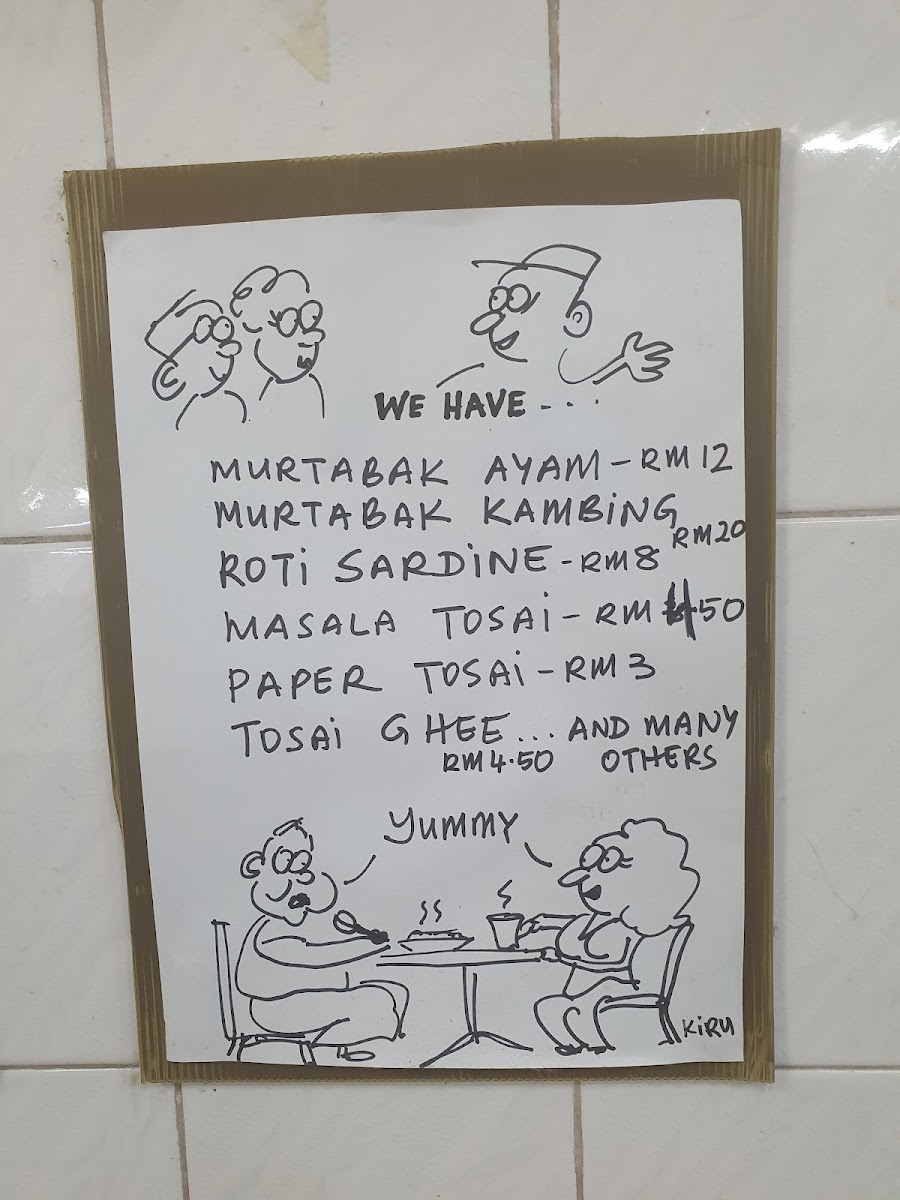 WE HAVE - . . .
MURTABAK AYAM - RM 12
MURTABAK KAMBiNG
RM20
ROTi SARDiNE - RM 8
MASALA TOSAi - RM 4.50
PAPER TOSAi - RM 3
TOSAi GHEE ... AND MANY
RM 4.50 OTHERS
YUMMY
KiRU